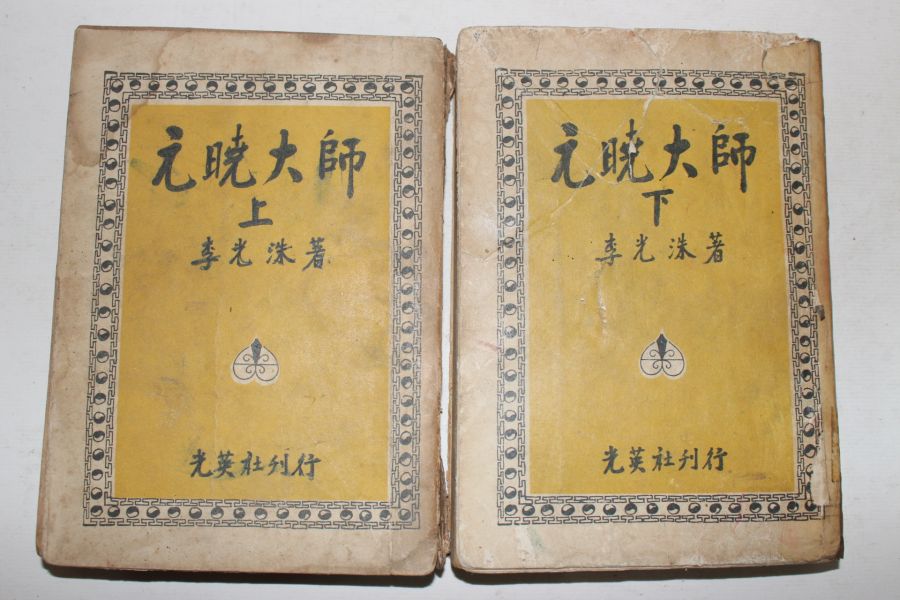 元曉大師
上
李光洙著
光英社刊行
元曉大師
下
李光洙著
光英社刊行